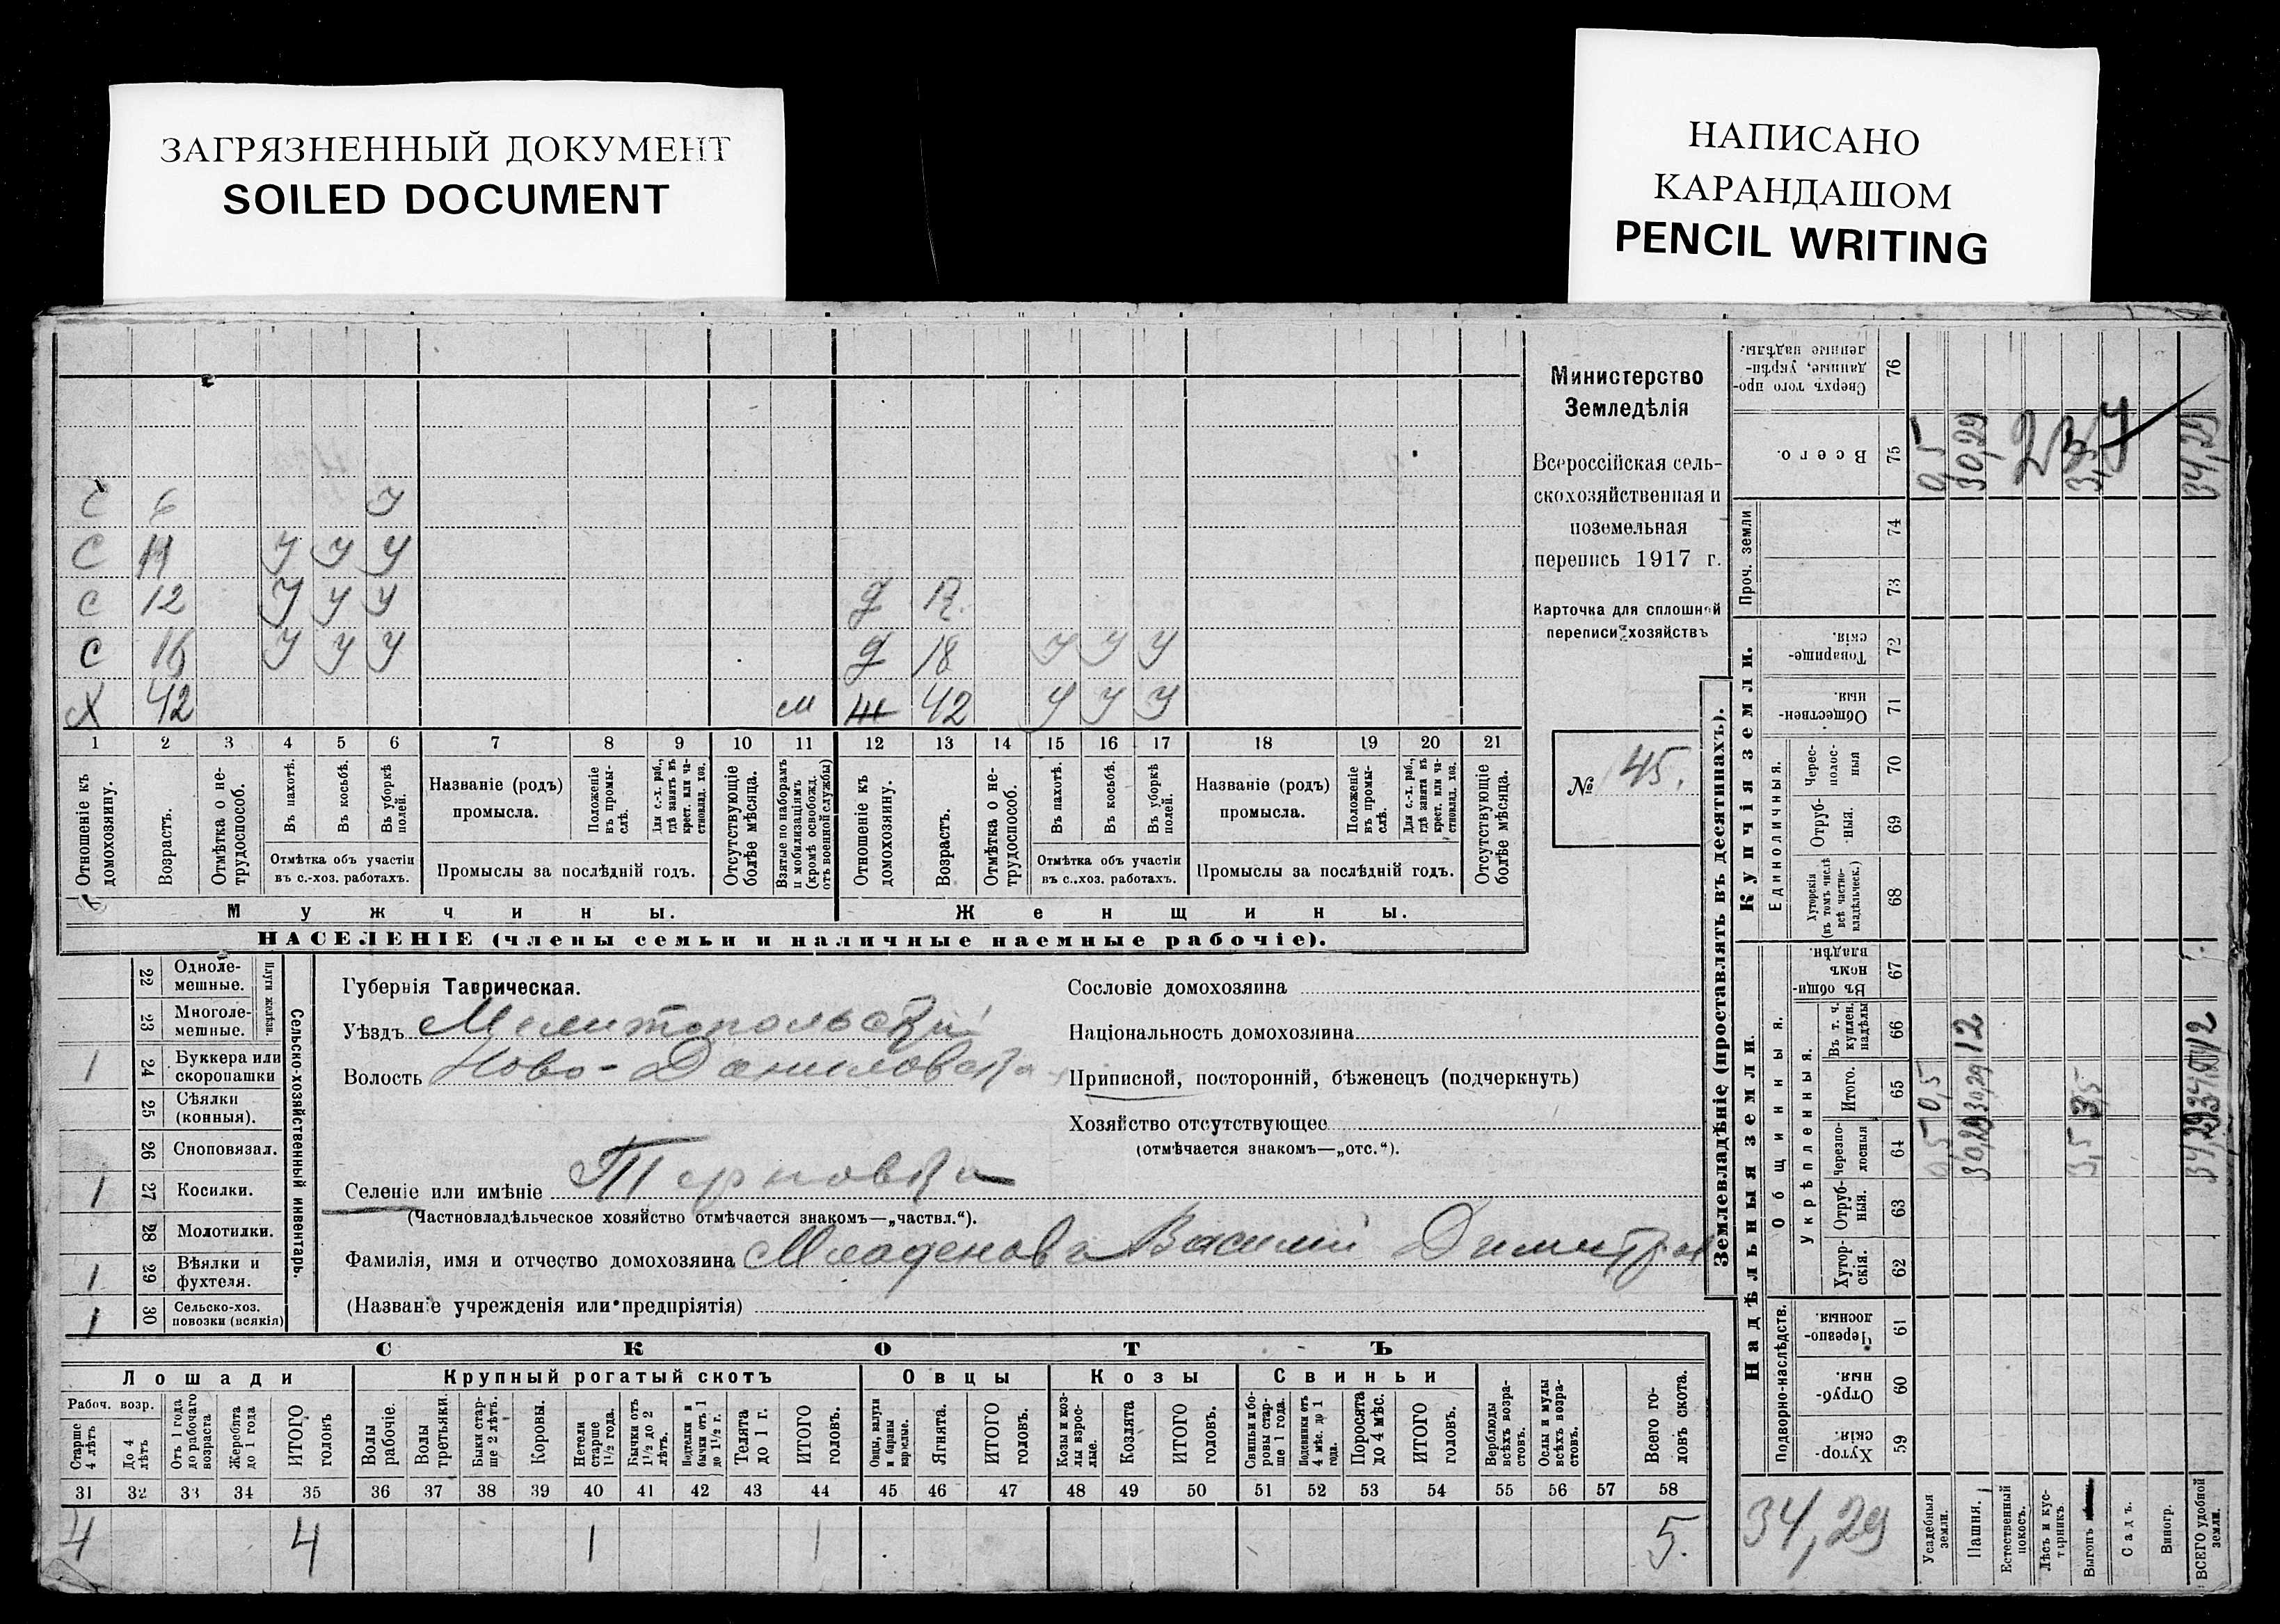 ЗАГРЯЗНЕННЫЙ ДОКУМЕНТ
SOILED DOCUMENT
НАПИСАНО
КАРАНДАШОМ
PENCIL WRITING
С 6 У
С 11 У У У
С 12 У У У д 12.
С 16 У У У д 18 У У У
Х 42 м ж 42 У У У
1 2 3 4 5 6 7 8 9 10 11 12 13 14 15 16 17 18 19 20 21
Отношеніе къ домохозяину.
Возрастъ.
Отмѣтка о нетрудоспособ.
Въ пахотѣ.
Въ косьбѣ.
Въ уборкѣ полей.
Отмѣтка объ участіи
въ с.-хоз. работахъ.
Названіе (родъ)
промысла.
Положеніе въ промыслѣ.
Для с.-х. раб., гдѣ занятъ въ крест. или частновлад. хоз.
Промыслы за послѣдній годъ.
Отсутствующіе болѣе мѣсяца.
Взятые по наборамъ и мобилизаціямъ (кромѣ освобожд. отъ военной службы)
Отношеніе къ домохозяину.
Возрастъ.
Отмѣтка о нетрудоспособ.
Въ пахотѣ.
Въ косьбѣ.
Въ уборкѣ полей.
Отмѣтка объ участіи
въ с.-хоз. работахъ.
Названіе (родъ)
промысла.
Положеніе въ промыслѣ.
Для с.-х. раб., гдѣ занятъ въ крест. или частновлад. хоз.
Промыслы за послѣдній годъ.
Отсутствующіе болѣе мѣсяца.
Мужчины.
Женщины.
НАСЕЛЕНІЕ (члены семьи и наличные наемные рабочіе).
Министерство
Земледѣлія
Всероссійская сель-
скохозяйственная и
поземельная
перепись 1917 г.
Карточка для сплошной
переписи хозяйствъ
№ 45.
22 Одноле-
мешные.
23 Многоле-
мешные.
Плуги желѣзн.
1 24 Буккера или
скоропашки
25 Сѣялки
(конныя).
26 Сноповязал.
1 27 Косилки.
28 Молотилки.
1 29 Вѣялки и
фухтеля.
1 30 Сельско-хоз.
повозки (всякія)
Сельско-хозяйственный инвентарь.
Губернія Таврическая.
Уѣздъ Мелитопольскій
Волость Ново-Даниловска
Селеніе или имѣніе Терновка
(Частновладѣльческое хозяйство отмѣчается знакомъ—„частвл.“).
Фамилія, имя и отчество домохозяина Младенова Василій Димитров
(Названіе учрежденія или предпріятія)
Сословіе домохозяина
Національность домохозяина
Приписной, посторонній, бѣженецъ (подчеркнуть)
Хозяйство отсутствующее
(отмѣчается знакомъ—„отс.“).
СКОТЪ
Лошади
Крупный рогатый скотъ
Овцы
Козы
Свиньи
Рабоч. возр.
Старше 4 лѣтъ
До 4 лѣтъ
Отъ 1 года до рабочаго возраста
Жеребята до 1 года
ИТОГО головъ
Волы рабочіе.
Волы третьяки.
Быки старше 2 лѣтъ.
Коровы.
Нетели старше 1½ года.
Бычки отъ 1½ до 2 лѣтъ.
Подтелки и бычки отъ 1 до 1½ г.
Телята до 1 г.
ИТОГО головъ.
Овцы, валухи и бараны взрослые.
Ягнята.
ИТОГО головъ.
Козы и козлы взрослые.
Козлята
ИТОГО головъ.
Свиньи и боровы старше 1 года.
Подсвинки отъ 4 мѣс. до 1 года.
Поросята до 4 мѣс.
ИТОГО головъ.
Верблюды всѣхъ возрастовъ.
Ослы и мулы всѣхъ возрастовъ.
Всего головъ скота.
31 32 33 34 35 36 37 38 39 40 41 42 43 44 45 46 47 48 49 50 51 52 53 54 55 56 57 58
4 4 1 1 5.
Землевладѣніе (проставлять въ десятинахъ).
Купчія земли.
Надѣльныя земли.
Сверхъ того проданные, укрѣпленные надѣлы. 76
Всего. 75
Проч. земли 74 73
Товарищескія. 72
Общественныя. 71
Единоличныя.
Чересполосныя 70
Отрубныя. 69
Хуторскія (въ томъ числѣ всѣ частновладѣльческ.) 68
Общинныя.
Въ общинномъ владѣн. 67
Укрѣпленныя.
Въ т. ч. куплен. надѣлы 66
Итого. 65
Черезполосныя 64
Отрубныя. 63
Хуторскія. 62
Подворно-наслѣдств.
Черезполосныя 61
Отрубныя. 60
Хуторскія. 59
34,29
Усадебныя земли. 0,5 0,5 0,5
Пашня. 30,29 30,29 12 30,29
Естественный покосъ.
Лѣсъ и кустарникъ.
Выгонъ 3,5 3,5 3,5
Садъ.
Виногр.
ВСЕГО удобной земли. 34,29 34,29 12 34,29